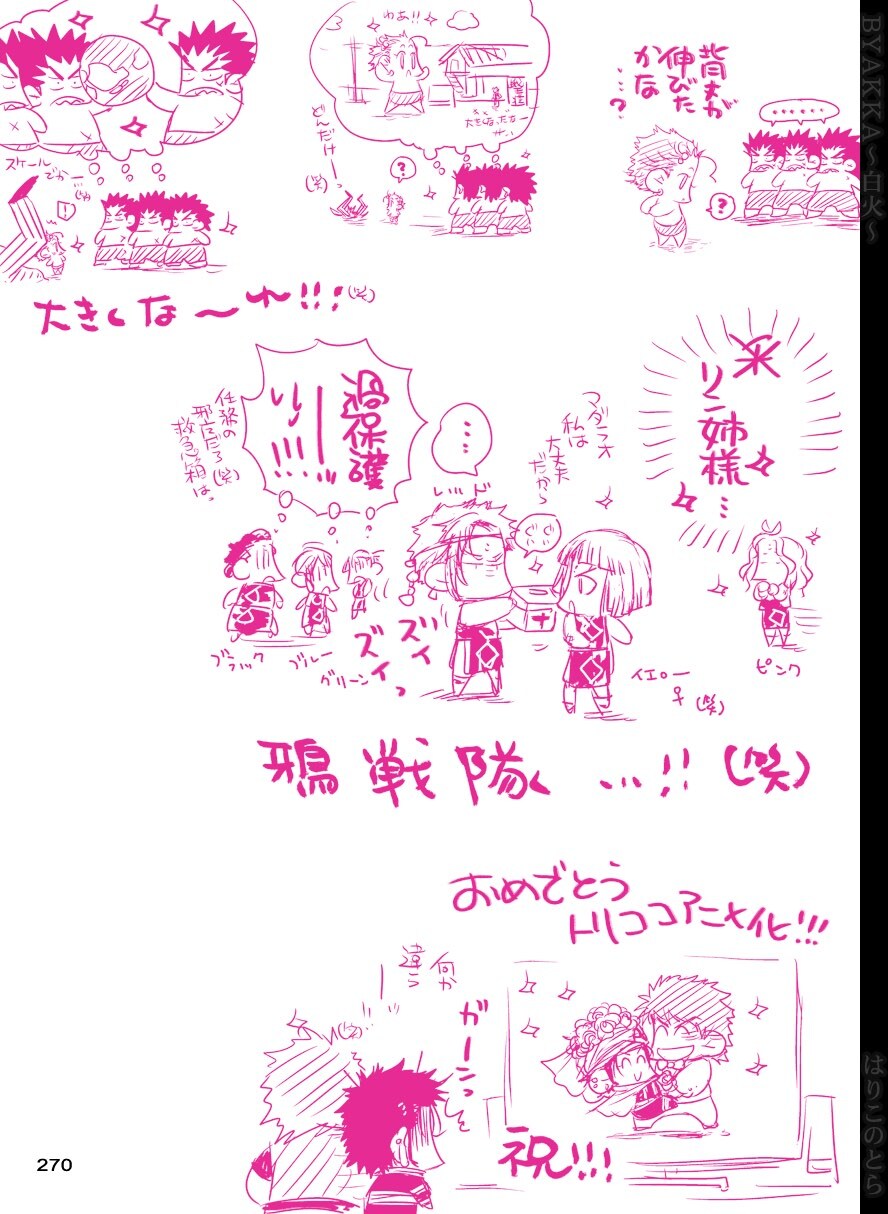 背丈が
伸びた
かな
…？
……
？
わあ!!
大きくなったなー
どんだけーっ
(笑)
？
スケール
でかー…
！
大きくな〜れ!!!(笑)
リン姉様…
マダラオ
私は
大丈夫
だから
…
過保護
ッ!!!
任務の
救急箱はっ
レッド
ズイ
ズイっ
ブラック
ブルー
グリーン
イエロー
♀(笑)
ピンク
鴉戦隊…!!(笑)
おめでとう
トリココアニメ化!!!
何か
違うー
ガーンっ
祝!!!
270
BYAKKA〜白火〜
はりこのとら